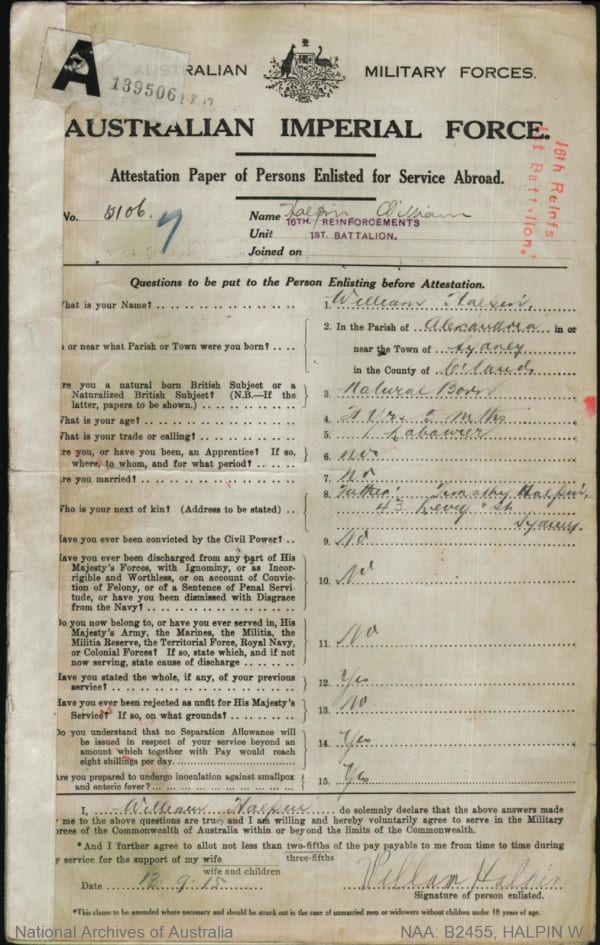 A
139506
AUSTRALIAN MILITARY FORCES.
AUSTRALIAN IMPERIAL FORCE.
Attestation Paper of Persons Enlisted for Service Abroad.
16th Reinfs
1st Battalion.
No. 5106 Name Halpin William
16TH. REINFORCEMENTS
Unit 1ST. BATTALION.
Joined on
Questions to be put to the Person Enlisting before Attestation.
hat is your Name? 1. William Halpin.
n or near what Parish or Town were you born? 2. In the Parish of Alexandria in or
near the Town of Sydney
in the County of C'land
re you a natural born British Subject or a
Naturalized British Subject? (N.B.—If the
latter, papers to be shown.) 3. Natural Born
hat is your age? 4. Yrs Mths
hat is your trade or calling? 5. Labourer
re you, or have you been, an Apprentice? If so,
where, to whom, and for what period? 6. No
re you married? 7. No
Who is your next of kin? (Address to be stated) 8. Father: Timothy Halpin,
43 St
Sydney.
ave you ever been convicted by the Civil Power? 9. No
ave you ever been discharged from any part of His
Majesty's Forces, with Ignominy, or as Incor-
rigible and Worthless, or on account of Convic-
tion of Felony, or of a Sentence of Penal Servi-
tude, or have you been dismissed with Disgrace
from the Navy? 10. No
Do you now belong to, or have you ever served in, His
Majesty's Army, the Marines, the Militia, the
Militia Reserve, the Territorial Force, Royal Navy,
or Colonial Forces? If so, state which, and if not
now serving, state cause of discharge 11. No
Have you stated the whole, if any, of your previous
service? 12. Yes
Have you ever been rejected as unfit for His Majesty's
Service? If so, on what grounds? 13. No
Do you understand that no Separation Allowance will
be issued in respect of your service beyond an
amount which together with Pay would reach
eight shillings per day. 14. Yes
Are you prepared to undergo inoculation against smallpox
and enteric fever? 15. Yes
I, William Halpin do solemnly declare that the above answers made
me to the above questions are true, and I am willing and hereby voluntarily agree to serve in the Military
orces of the Commonwealth of Australia within or beyond the limits of the Commonwealth.
*And I further agree to allot not less than two-fifths of the pay payable to me from time to time during
three-fifths
y service for the support of my wife
wife and children
Date 13.9.15 William Halpin
Signature of person enlisted.
*This clause to be amended where necessary and should be struck out in the case of unmarried men or widowers without children under 18 years of age.
National Archives of Australia NAA: B2455, HALPIN W